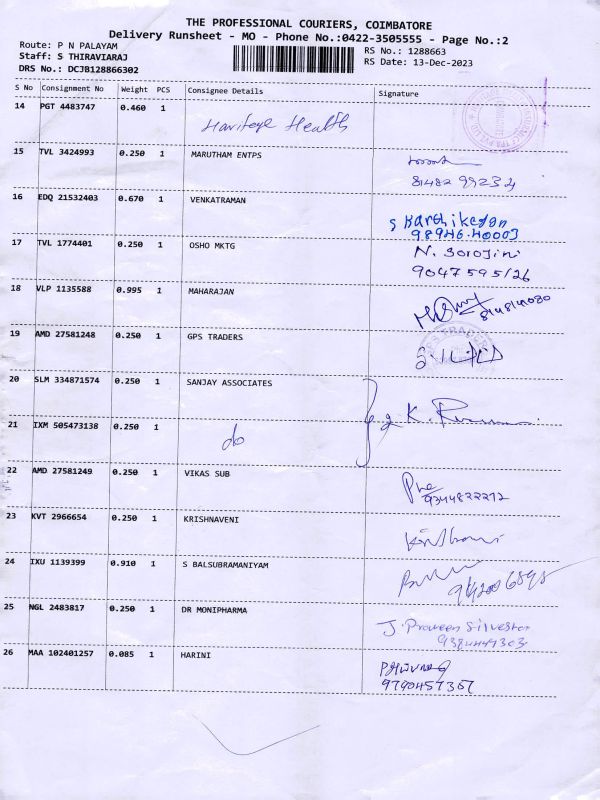 THE PROFESSIONAL COURIERS, COIMBATORE
Delivery Runsheet - MO - Phone No.:0422-3505555 - Page No.:2
Route: P N PALAYAM
Staff: S THIRAVIARAJ
DRS No.: DCJB128866302
RS No.: 1288663
RS Date: 13-Dec-2023
S No Consignment No Weight PCS Consignee Details Signature
14 PGT 4483747 0.460 1
15 TVL 3424993 0.250 1 MARUTHAM ENTPS
16 EDQ 21532403 0.670 1 VENKATRAMAN
S Karthikeyan
98946-40003
17 TVL 1774401 0.250 1 OSHO MKTG N. Sorojini
9047595126
18 VLP 1135588 0.995 1 MAHARAJAN
19 AMD 27581248 0.250 1 GPS TRADERS
20 SLM 334871574 0.250 1 SANJAY ASSOCIATES
21 IXM 505473138 0.250 1 do
22 AMD 27581249 0.250 1 VIKAS SUB
9344822212
23 KVT 2966654 0.250 1 KRISHNAVENI
24 IXU 1139399 0.910 1 S BALSUBRAMANIYAM
25 NGL 2483817 0.250 1 DR MONIPHARMA J. Praveen Silvester
26 MAA 102401257 0.085 1 HARINI
9790457367